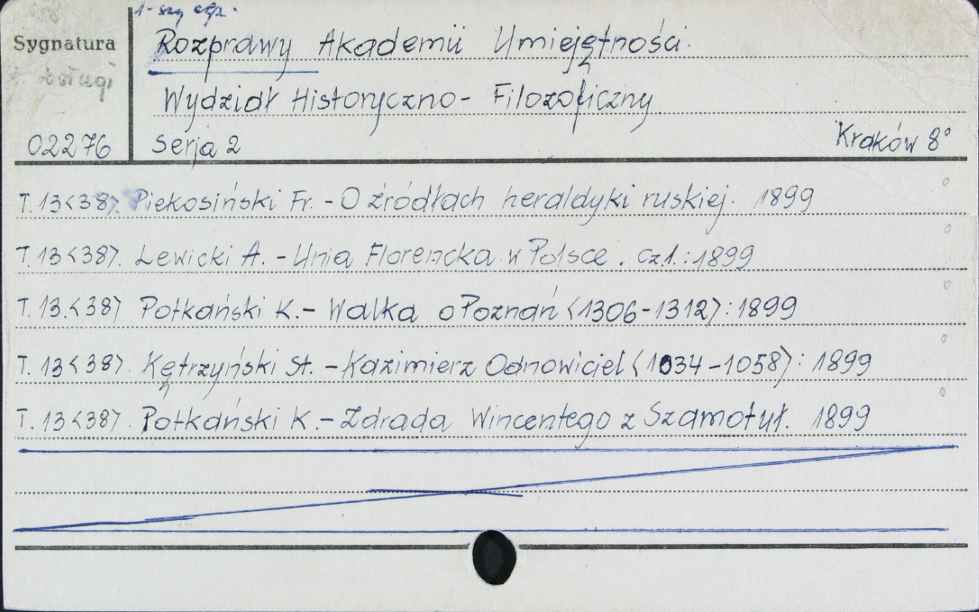 1-szy egz.
Sygnatura
Rozprawy Akademii Umiejętności.
Wydział Historyczno-Filozoficzny
02276 Serja 2 Kraków 8°
T. 13<38>. Piekosiński Fr. - O źródłach heraldyki ruskiej. 1899
T. 13<38>. Lewicki A. - Unia Florencka w Polsce. cz.1.:1899
T. 13.<38> Potkański K. - Walka o Poznań <1306-1312>: 1899
T. 13<38>. Kętrzyński St. - Kazimierz Odnowiciel <1034-1058>: 1899
T. 13<38>. Potkański K. - Zdrada Wincentego z Szamotuł. 1899